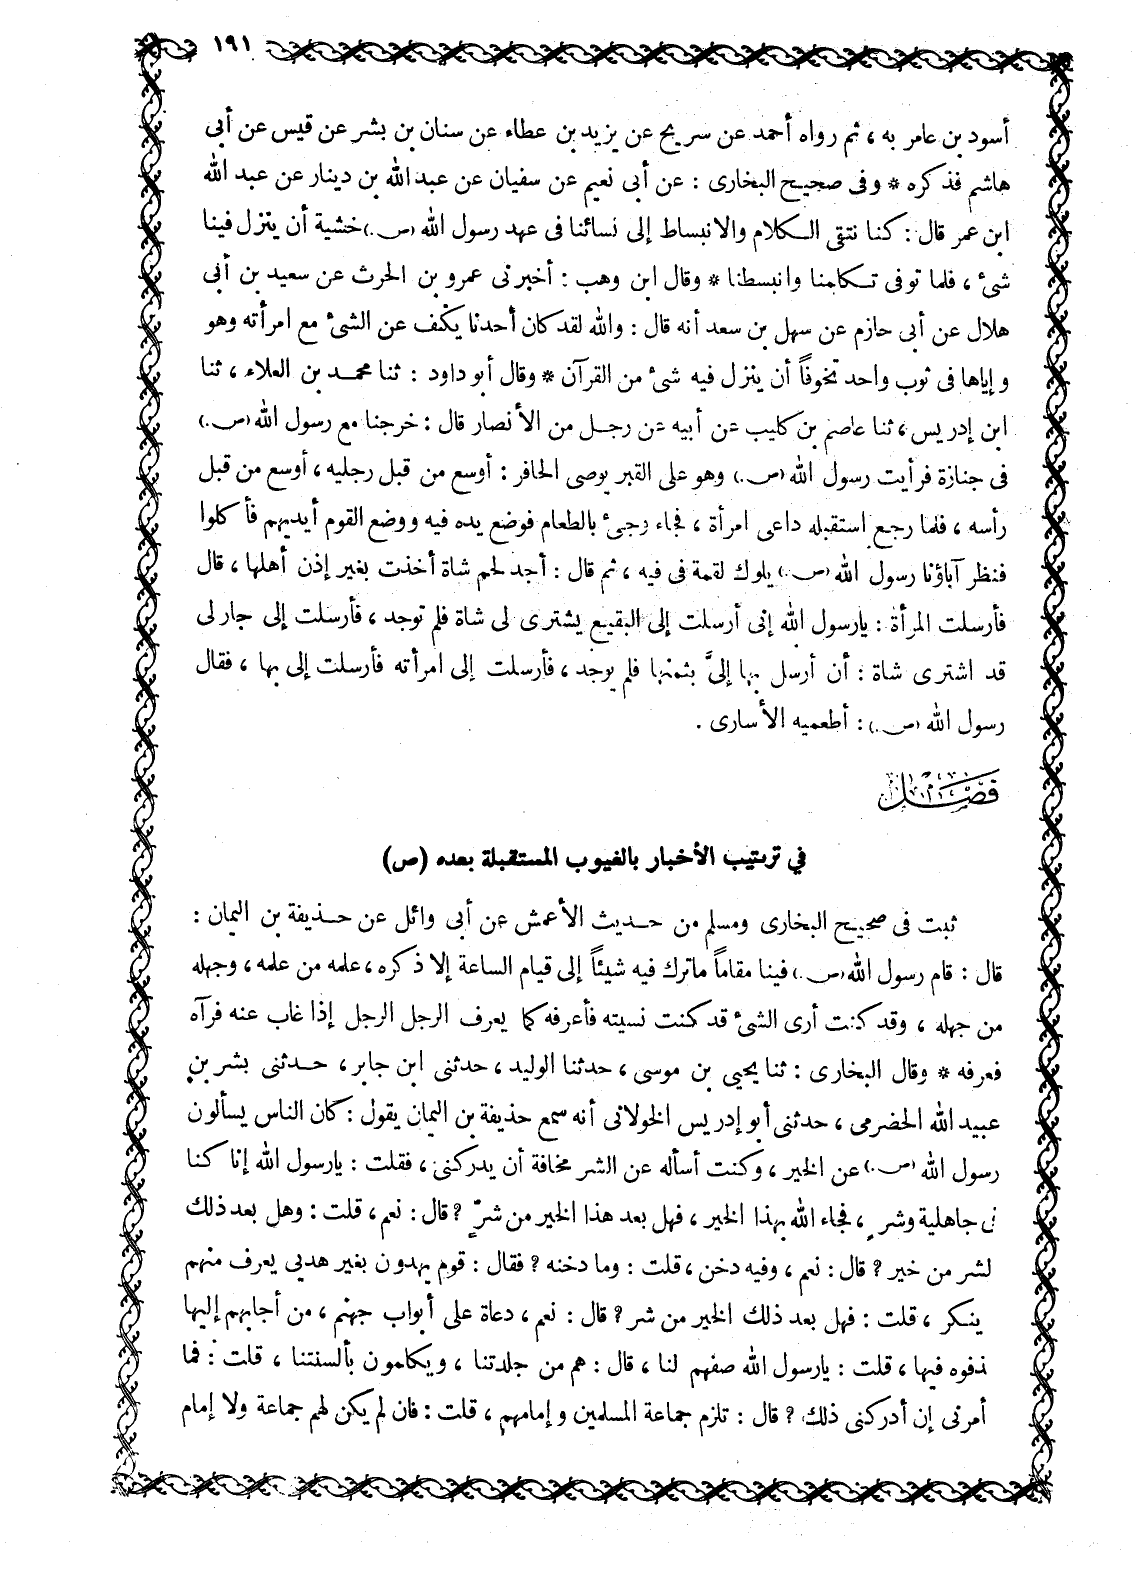 ١٩١
أسود بن عامر به ، ثم رواه أحمد عن سريج عن يزيد بن عطاء عن سنان بن بشر عن قيس عن أبى
هاشم فذكره * وفى صحيح البخارى : عن أبى نعيم عن سفيان عن عبد الله بن دينار عن عبد الله
ابن عمر قال : كنا نتقى الكلام والانبساط إلى نسائنا فى عهد رسول الله (ص.) خشية أن ينزل فينا
شىء ، فلما توفى تكلمنا وانبسطنا * وقال ابن وهب : أخبرنى عمرو بن الحرث عن سعيد بن أبى
هلال عن أبى حازم عن سهل بن سعد أنه قال : والله لقد كان أحدنا يكف عن الشىء مع امرأته وهو
وإياها فى ثوب واحد تخوفاً أن ينزل فيه شىء من القرآن * وقال أبو داود : ثنا محمد بن العلاء ، ثنا
ابن إدريس ، ثنا عاصم بن كليب عن أبيه عن رجل من الأنصار قال : خرجنا مع رسول الله (ص.)
فى جنازة فرأيت رسول الله (ص.) وهو على القبر يوصى الحافر : أوسع من قبل رجليه ، أوسع من قبل
رأسه ، فلما رجع استقبله داعى امرأة ، فجاء وجىء بالطعام فوضع يده فيه ووضع القوم أيديهم فأكلوا
فنظر آباؤنا رسول الله (ص.) يلوك لقمة فى فيه ، ثم قال : أجد لحم شاة أخذت بغير إذن أهلها ، قال
فأرسلت المرأة : يارسول الله إنى أرسلت إلى البقيع يشترى لى شاة فلم توجد ، فأرسلت إلى جار لى
قد اشترى شاة : أن أرسل بها إلىَّ بثمنها فلم يوجد ، فأرسلت إلى امرأته فأرسلت إلى بها ، فقال
رسول الله (ص.) : أطعميه الأسارى .
فصل
في ترتيب الأخبار بالغيوب المستقبلة بعده (ص)
ثبت فى صحيح البخارى ومسلم من حديث الأعمش عن أبى وائل عن حذيفة بن اليمان :
قال : قام رسول الله (ص.) فينا مقاماً ماترك فيه شيئاً إلى قيام الساعة إلا ذكره ، علمه من علمه ، وجهله
من جهله ، وقد كنت أرى الشىء قد كنت نسيته فأعرفه كما يعرف الرجل الرجل إذا غاب عنه فرآه
فعرفه * وقال البخارى : ثنا يحيى بن موسى ، حدثنا الوليد ، حدثنى ابن جابر ، حدثنى بشر بن
عبيد الله الحضرمى ، حدثنى أبو إدريس الخولانى أنه سمع حذيفة بن اليمان يقول : كان الناس يسألون
رسول الله (ص.) عن الخير ، وكنت أسأله عن الشر مخافة أن يدركنى ، فقلت : يارسول الله إنا كنا
فى جاهلية وشر ، فجاء الله بهذا الخير ، فهل بعد هذا الخير من شرّ ? قال : نعم ، قلت : وهل بعد ذلك
لشر من خير ? قال : نعم ، وفيه دخن ، قلت : وما دخنه ? فقال : قوم يهدون بغير هديى يعرف منهم
ينكر ، قلت : فهل بعد ذلك الخير من شر ? قال : نعم ، دعاة على أبواب جهنم ، من أجابهم إليها
نذفوه فيها ، قلت : يارسول الله صفهم لنا ، قال : هم من جلدتنا ، ويكلمون بألسنتنا ، قلت : فما
أمرنى إن أدركنى ذلك ? قال : تلزم جماعة المسلمين وإمامهم ، قلت : فان لم يكن لهم جماعة ولا إمام